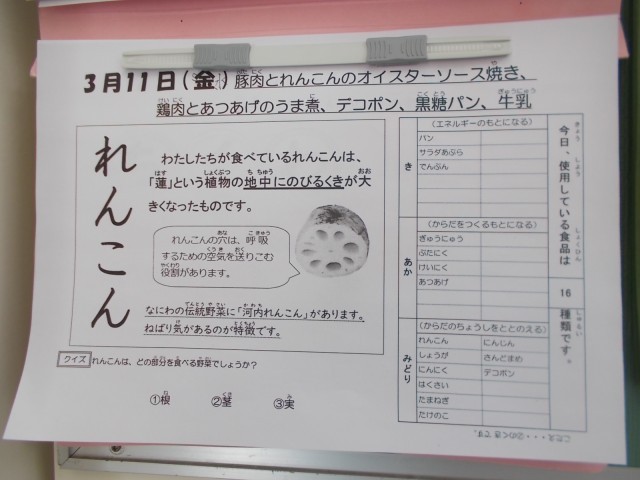 3月11日(金) 豚肉とれんこんのオイスターソース焼き、
鶏肉とあつあげのうま煮、デコポン、黒糖パン、牛乳
れんこん
わたしたちが食べているれんこんは、
「蓮」という植物の地中にのびるくきが大
きくなったものです。
れんこんの穴は、呼吸
するための空気を送りこむ
役割があります。
なにわの伝統野菜に「河内れんこん」があります。
ねばり気があるのが特徴です。
クイズ れんこんは、どの部分を食べる野菜でしょうか?
①根 ②茎 ③実
今日、使用している食品は
16
種類です。
き
(エネルギーのもとになる)
パン
サラダあぶら
でんぷん
あか
(からだをつくるもとになる)
ぎゅうにゅう
ぶたにく
けいにく
あつあげ
みどり
(からだのちょうしをととのえる)
れんこん にんじん
しょうが さんどまめ
にんにく デコポン
はくさい
たまねぎ
たけのこ
こたえ・・・②のくきです。